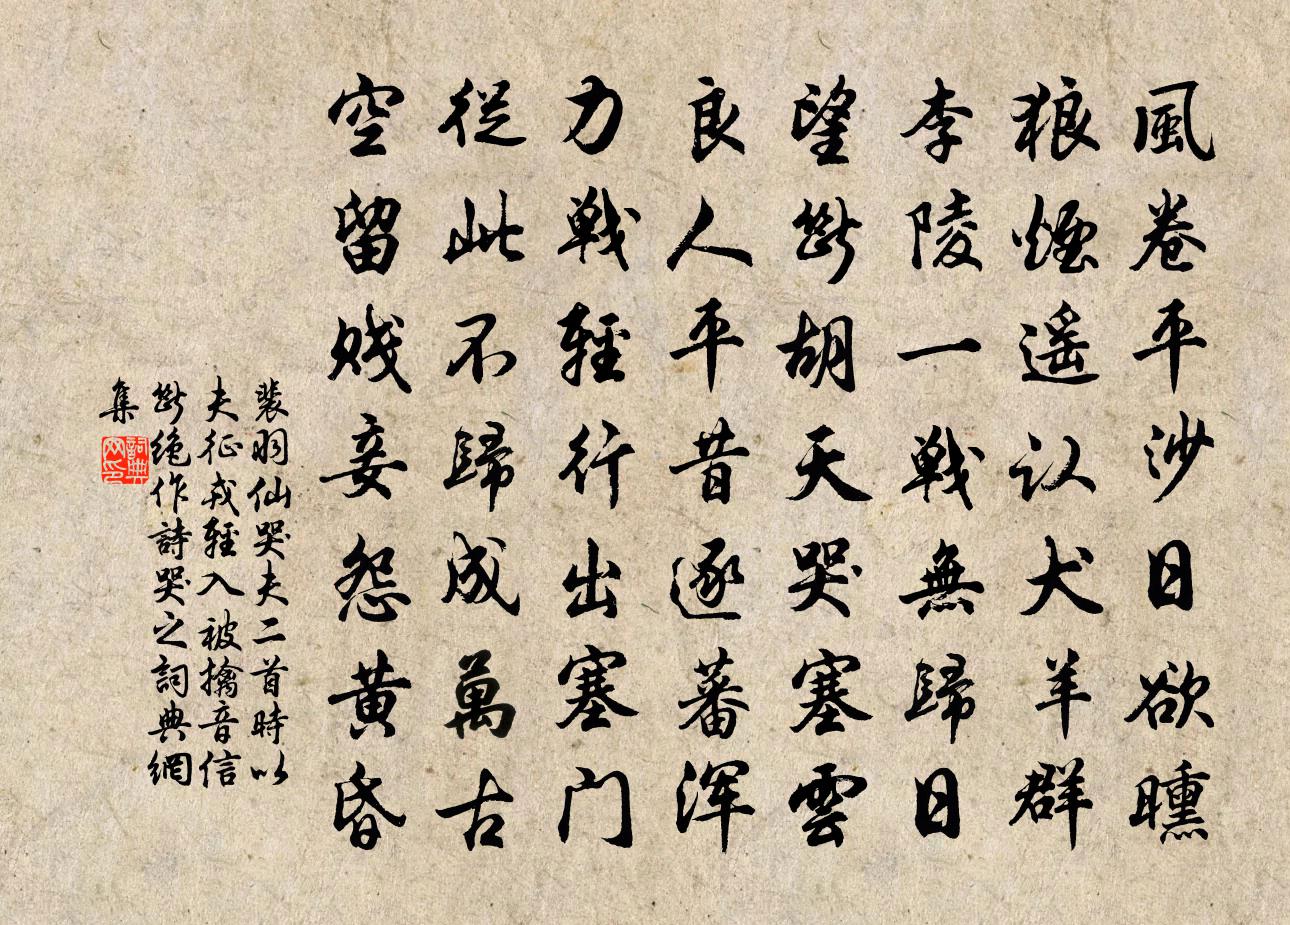 風卷平沙日欲曛
狼煙遥认犬羊群
李陵一戰無歸日
望斷胡天哭塞雲
良人平昔逐蕃渾
力戰輕行出塞门
從此不歸成萬古
空留賤妾怨黄昏
裴羽仙哭夫二首時以
夫征戎輕入被擒音信
斷絶作詩哭之詞典網
集
詞典
网印